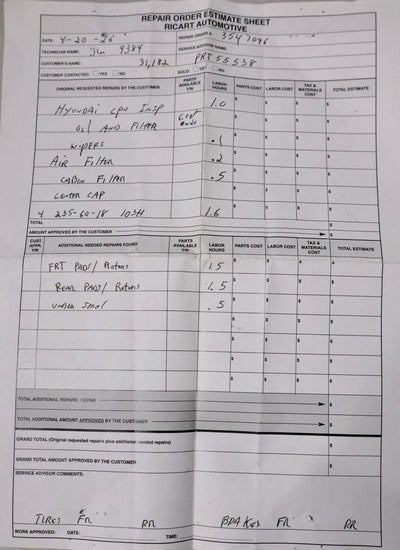 REPAIR ORDER ESTIMATE SHEET
RICART AUTOMOTIVE
DATE: 4-20-26 REPAIR ORDER #: 3547046
TECHNICIAN NAME: Jim 9384 SERVICE ADVISOR NAME:
CUSTOMER'S NAME: 31,182 PRT55538
CUSTOMER CONTACTED: YES NO SOLD: YES NO
ORIGINAL REQUESTED REPAIRS BY THE CUSTOMER PARTS AVAILABLE Y/N LABOR HOURS PARTS COST LABOR COST TAX & MATERIALS COST TOTAL ESTIMATE
HYUNDAI CPO INSP 1.0
OIL AND FILTER
WIPERS .1
AIR FILTER .2
CABIN FILTER .5
CENTER CAP
4 235-60-18 103H 1.6
TOTAL
AMOUNT APPROVED BY THE CUSTOMER
CUST. APPR. Y/N ADDITIONAL NEEDED REPAIRS FOUND PARTS AVAILABLE Y/N LABOR HOURS PARTS COST LABOR COST TAX & MATERIALS COST TOTAL ESTIMATE
FRT PADS/ Rotors 1.5
REAR PADS/ Rotors 1.5
UNDER .5
TOTAL ADDITIONAL REPAIRS FOUND
TOTAL ADDITIONAL AMOUNT APPROVED BY THE CUSTOMER
GRAND TOTAL (Original requested repairs plus additional needed repairs)
GRAND TOTAL AMOUNT APPROVED BY THE CUSTOMER
SERVICE ADVISOR COMMENTS:
TIRES FR RR BRAKES FR RR
WORK APPROVED: DATE: TIME: